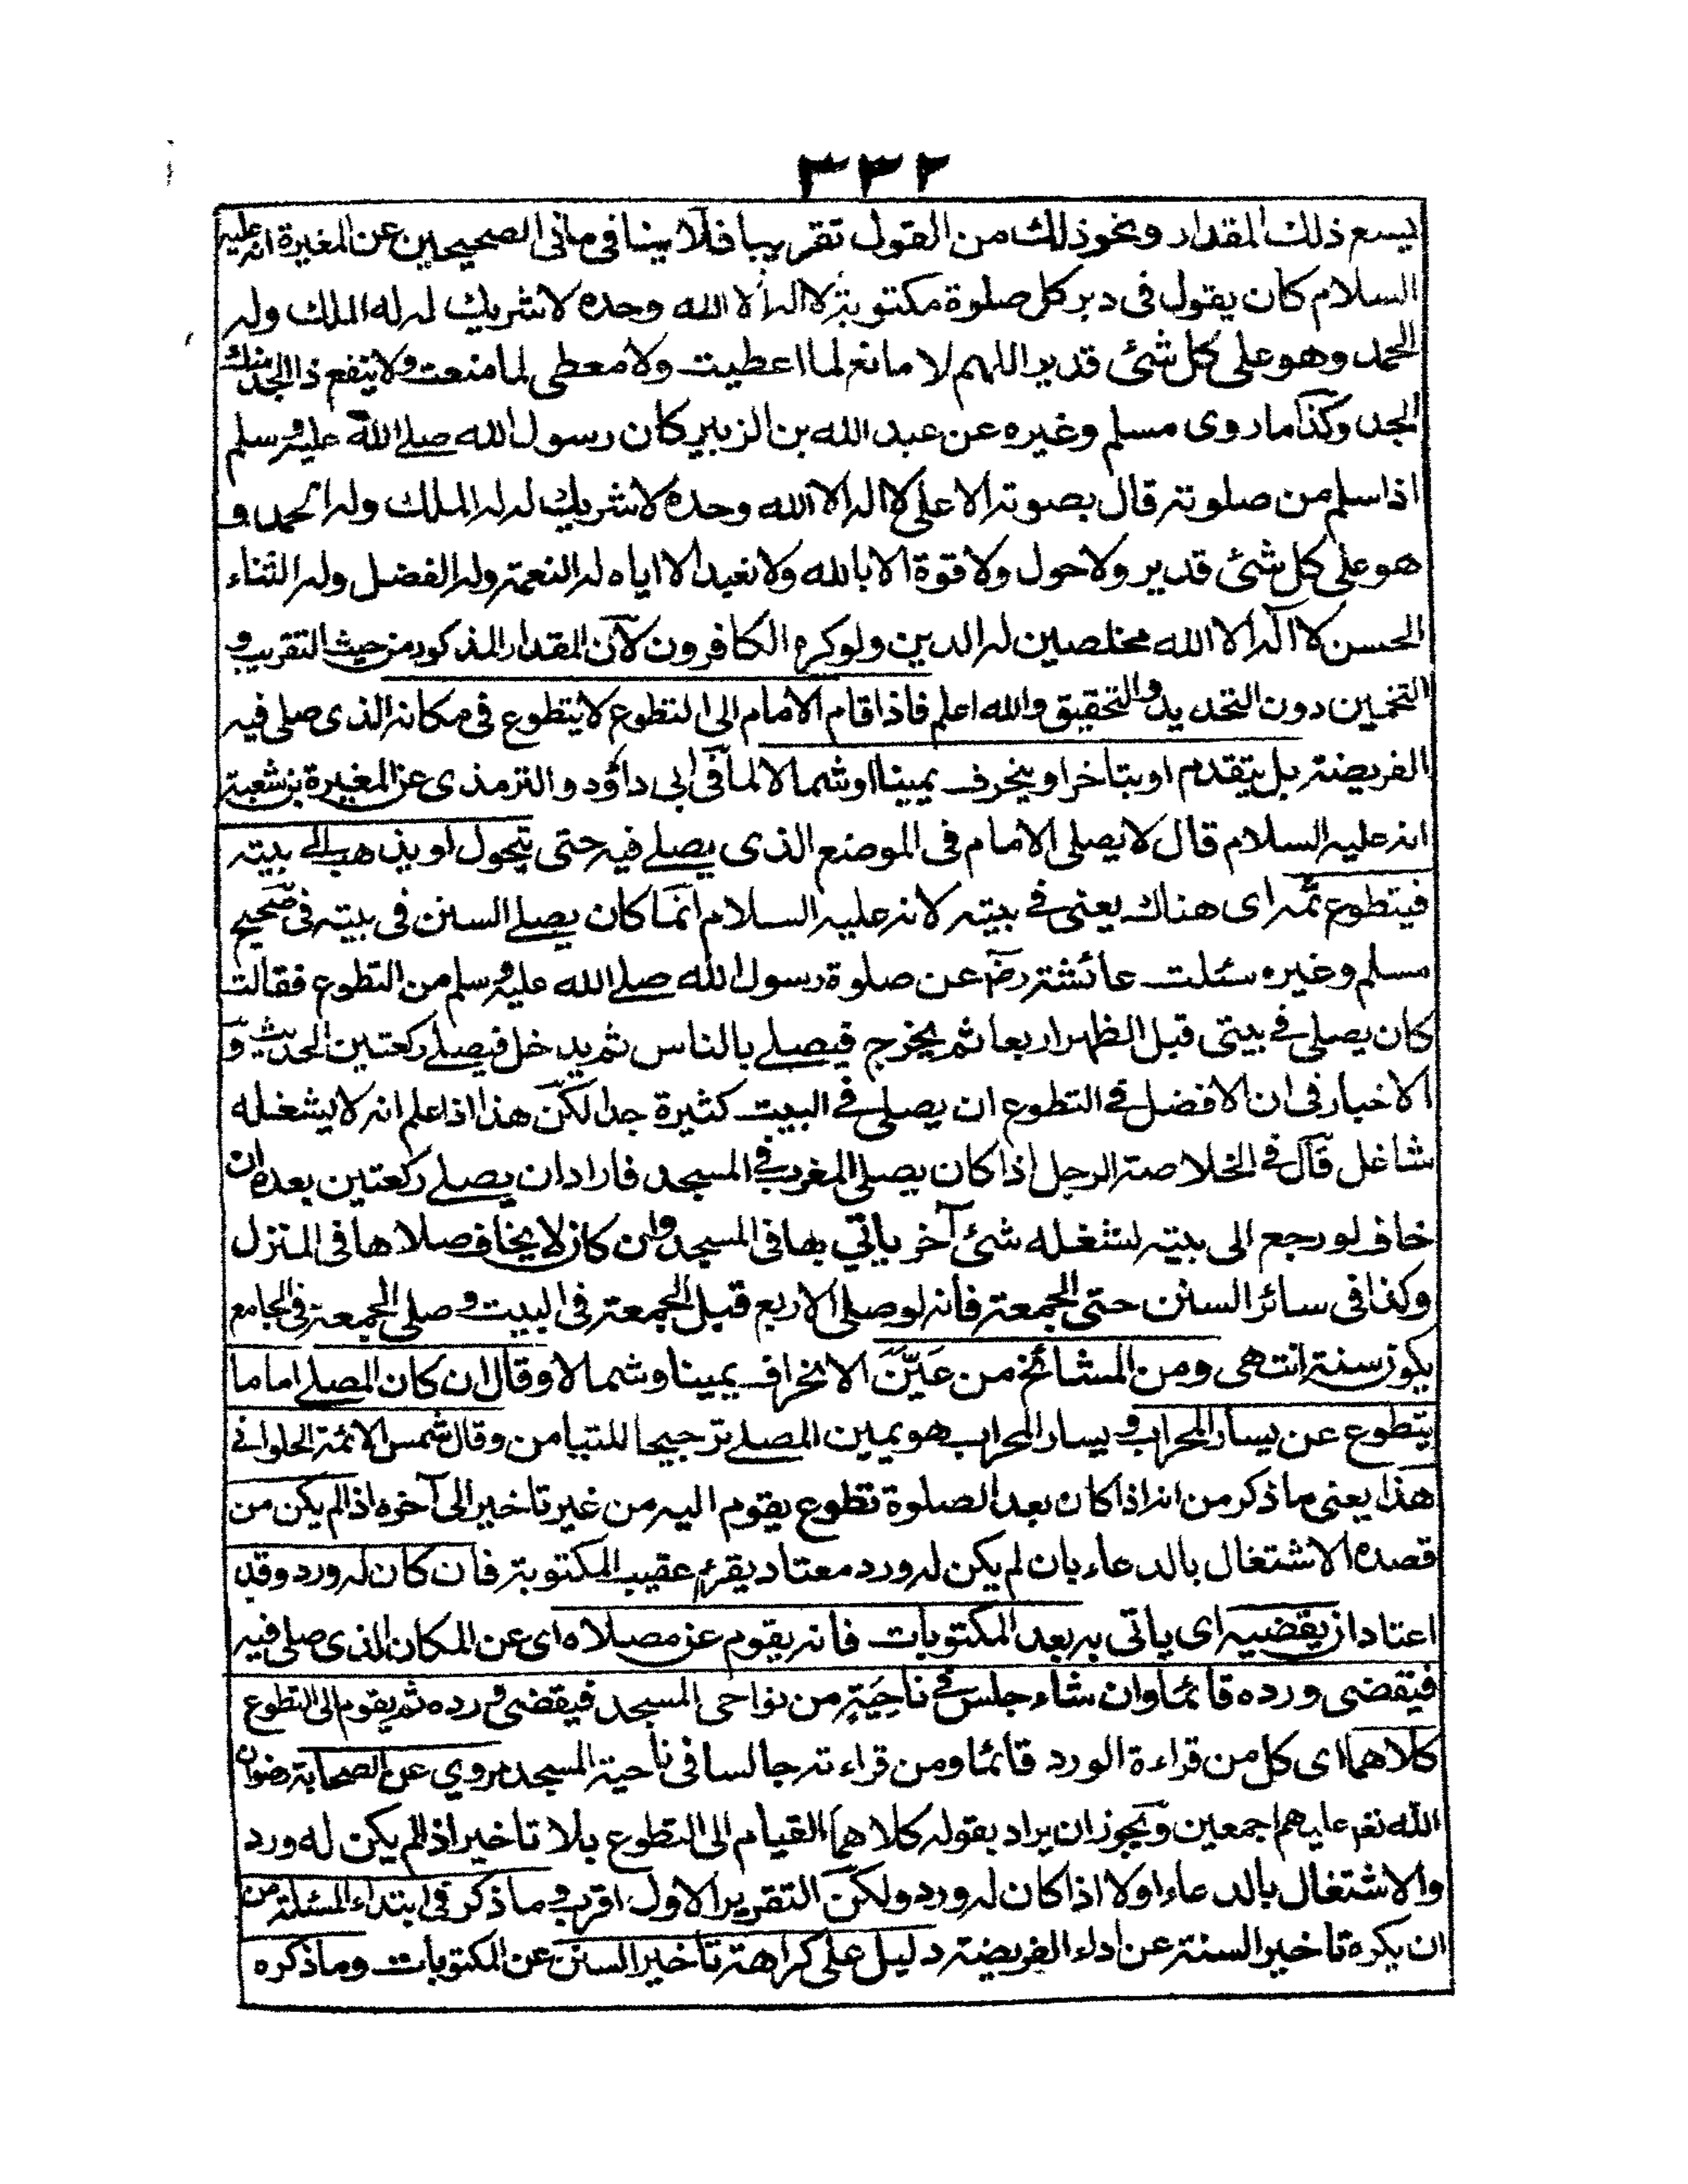 ٣٣٢
يسع ذلك المقدار ونحو ذلك من القول تقريبا فلا ينافى ما فى الصحيحين عن المغيرة انه عليه
السلام كان يقول فى دبر كل صلوة مكتوبة لا اله الا الله وحده لا شريك له له الملك وله
الحمد وهو على كل شئ قدير اللهم لا مانع لما اعطيت ولا معطى لما منعت ولا ينفع ذا الجد منك
الجد وكذا ما روى مسلم وغيره عن عبد الله بن الزبير كان رسول الله صلى الله عليه وسلم
اذا سلم من صلوته قال بصوته الاعلى لا اله الا الله وحده لا شريك له له الملك وله الحمد و
هو على كل شئ قدير ولا حول ولا قوة الا بالله ولا نعبد الا اياه له النعمة وله الفضل وله الثناء
الحسن لا اله الا الله مخلصين له الدين ولو كره الكافرون لان المقدار المذكور من حيث التقريب و
التخمين دون التحديد والتحقيق والله اعلم فاذا قام الامام الى التطوع لا يتطوع فى مكانه الذى صلى فيه
الفريضة بل يتقدم او يتاخر او ينحرف يمينا او شمالا لما فى ابى داؤد والترمذى عن المغيرة بن شعبة
انه عليه السلام قال لا يصلى الامام فى الموضع الذى يصلى فيه حتى يتحول او يذهب الى بيته
فيتطوع ثمه اى هناك يعنى فى بيته لانه عليه السلام انما كان يصلى السنن فى بيته فى صحيح
مسلم وغيره سئلت عائشة رض عن صلوة رسول الله صلى الله عليه وسلم من التطوع فقالت
كان يصلى فى بيتى قبل الظهر اربعا ثم يخرج فيصلى بالناس ثم يدخل فيصلى ركعتين الحديث و
الاخبار فى ان الافضل فى التطوع ان يصلى فى البيت كثيرة جدا لكن هذا اذا علم انه لا يشغله
شاغل قال فى الخلاصة الرجل اذا كان يصلى المغرب فى المسجد فاراد ان يصلى ركعتين بعده ان
خاف لو رجع الى بيته لشغله شئ آخر ياتي بها فى المسجد وان كان لا يخاف صلاها فى المنزل
وكذا فى سائر السنن حتى الجمعة فانه لو صلى الاربع قبل الجمعة فى البيت وصلى الجمعة فى الجامع
يكون سنة انتهى ومن المشائخ من عيّن الانحراف يمينا وشمالا وقال ان كان المصلى اماما
يتطوع عن يسار المحراب ويسار المحراب هو يمين المصلى ترجيحا للتيامن وقال شمس الائمة الحلوانى
هذا يعنى ما ذكر من انه اذا كان بعد الصلوة تطوع يقوم اليه من غير تاخير الى آخره اذا لم يكن من
قصده الاشتغال بالدعاء بان لم يكن له ورد معتاد يقرئه عقيب المكتوبة فان كان له ورد وقد
اعتاد ان يقضيه اى ياتى به بعد المكتوبات فانه يقوم عن مصلاه اى عن المكان الذى صلى فيه
فيقضى ورده قائما وان شاء جلس فى ناحية من نواحى المسجد فيقضى ورده ثم يقوم الى التطوع
كلاهما اى كل من قراءة الورد قائما ومن قراءته جالسا فى ناحية المسجد مروي عن الصحابة رضوان
الله تعم عليهم اجمعين ويجوز ان يراد بقوله كلاهما القيام الى التطوع بلا تاخير اذا لم يكن له ورد
والاشتغال بالدعاء اولا اذا كان له ورد ولكن التقرير الاول اقرب وما ذكر فى ابتداء المسئلة من
ان يكره تاخير السنة عن اداء الفريضة دليل على كراهة تاخير السنن عن المكتوبات وما ذكره